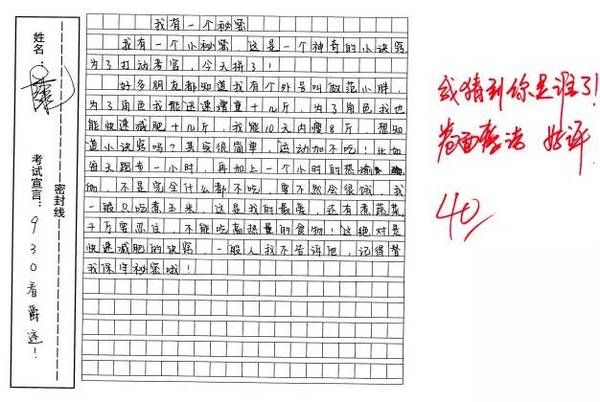 姓名：
考试宣言：930看爵迹！
密封线
我有一个秘密
我有一个小秘密，这是一个神奇的小诀窍
为了打动考官，今天拼了！
好多朋友都知道我有个外号叫做范小胖，
为了角色我能迅速增重十几斤，为了角色我也
能快速减肥十几斤，我能10天内瘦8斤，想知
道小诀窍吗？其实很简单，运动加不吃！比如
每天跑步一小时，再加上一个小时的热瑜
伽，不是完全什么都不吃，要不然会很饿，我
一般只吃煮玉米，这是我的最爱，还有煮蔬菜
千万要忍住，不能吃高热量的食物！这绝对是
快速减肥的诀窍，一般人我不告诉他，记得替
我保守秘密哦！
我猜到你是谁了！
卷面整洁 好评
40